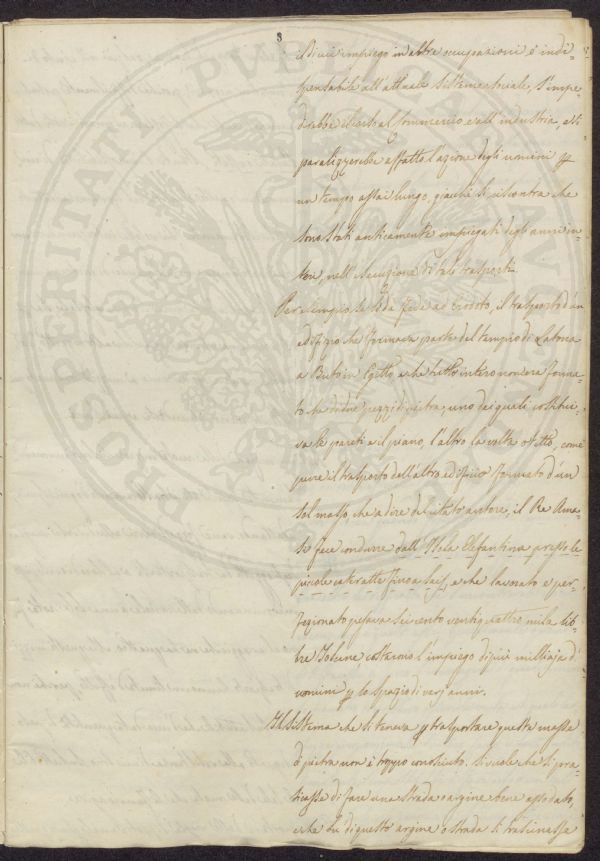 8
di cui impiego in altre occupazioni è indi-
spensabile all'attuale sistema sociale, s'impe-
direbbe il corso al Commercio e all'industria, e si
paralizzerebbe affatto l'azione degli uomini p
un tempo assai lungo, giacchè si riscontra che
sono stati anticamente impiegati degli anni in-
teri, nell'esecuzione di tali trasporti.
Per esempio se si dà fede ad Erodoto, il trasporto d'un
edifizio che formava parte del tempio di Latona
a Buto in Egitto, e che tutto intero non era forma-
to che da due pezzi di pietra, uno dei quali costitui-
va le pareti e il piano, l'altro la volta o tetto, come
pure il trasporto dell'altro edificio formato d'un
sol masso, che a dire del citato autore, il Re Ama-
si fece condurre dall'Isola Elefantina presso le
picole cateratte fino a Sais, e che lavorato e per-
fezionato pesava seicento ventiquattro mila lib-
bre Toscane costarono l'impiego di più milliaja d
uomini p lo spazio di varj anni.
Il Sistema che si teneva p trasportare queste masse
di pietra non è troppo conosciuto. Si vuole che si pra-
ticasse di fare una strada o argine bene assodato,
e che su di questo argine o strada si trascinasse
PROSPERITATI PUBLICAE